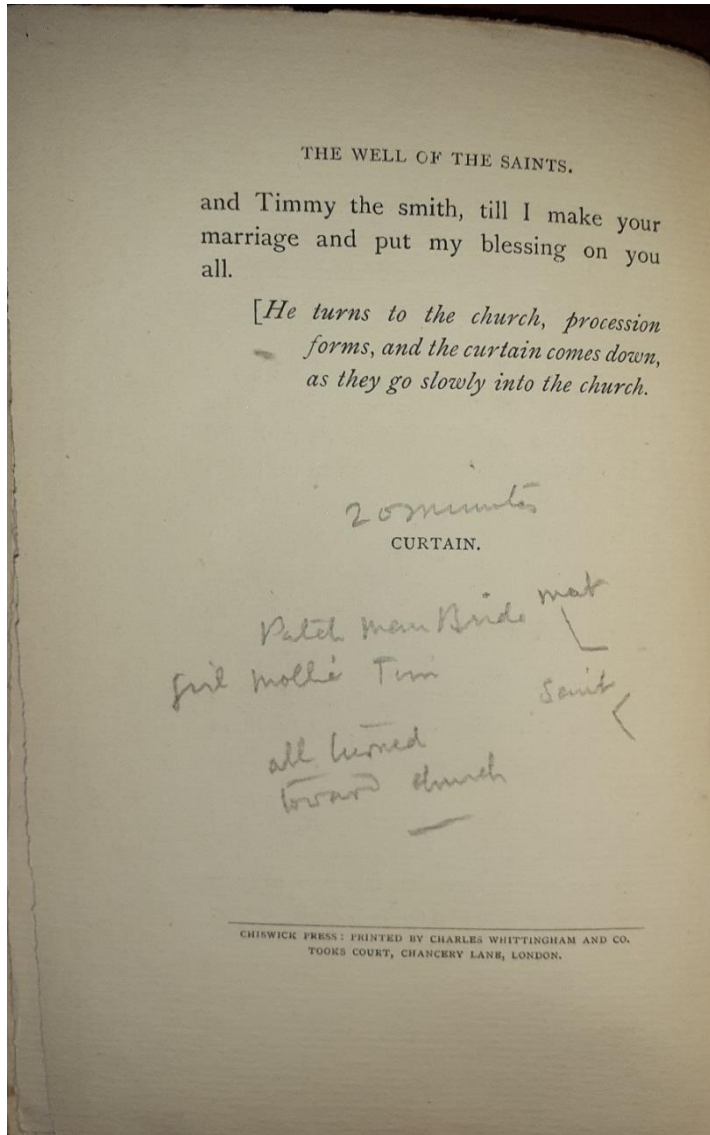 THE WELL OF THE SAINTS.
and Timmy the smith, till I make your
marriage and put my blessing on you
all.
[He turns to the church, procession
forms, and the curtain comes down,
as they go slowly into the church.
20 minutes
CURTAIN.
Patch Bride mat
girl Mollie Tim
Saint
all turned
toward church
CHISWICK PRESS: PRINTED BY CHARLES WHITTINGHAM AND CO.
TOOKS COURT, CHANCERY LANE, LONDON.